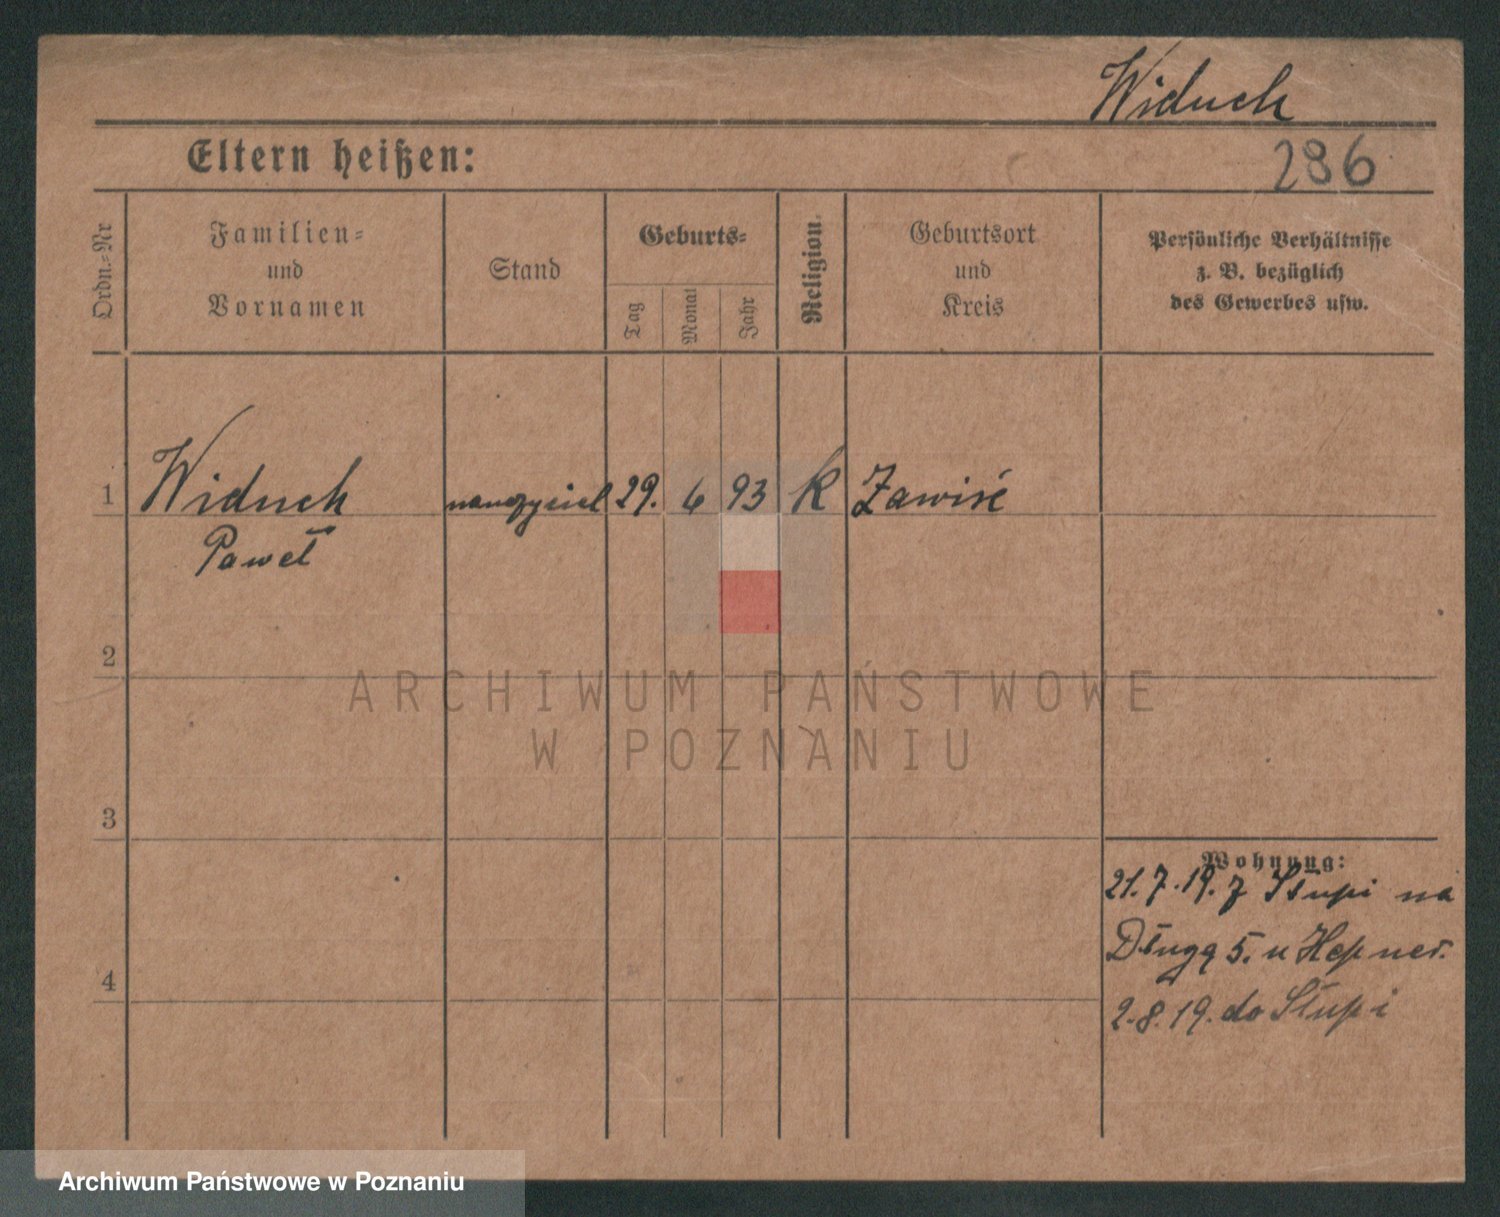 Widuch
Eltern heißen:
286
Ordn.-Nr
Familien-
und
Vornamen
Stand
Geburts-
Tag
Monat
Jahr
Religion.
Geburtsort
und
Kreis
Persönliche Verhältnisse
z. B. bezüglich
des Gewerbes usw.
1
Widuch nauczyciel 29. 6 93 K Zawiść
Paweł
2
ARCHIWUM PAŃSTWOWE
W POZNANIU
3
Wohnung:
21.7.19. z Słupi na
Długą 5. u Hepner.
4
2.8.19. do Słupi
Archiwum Państwowe w Poznaniu